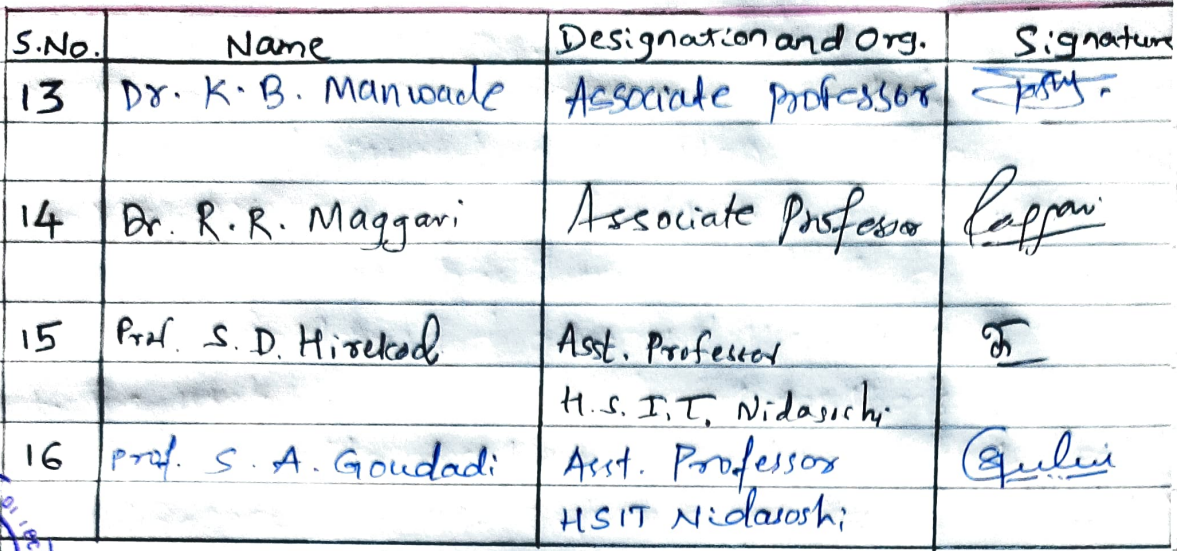 S.No. Name Designation and Org. Signature
13 Dr. K. B. Manwade Associate professor
14 Dr. R. R. Maggari Associate Professor
15 Prof. S. D. Hirekod Asst. Professor
H.S.I.T. Nidasoshi
16 prof. S. A. Goudadi Asst. Professor
HSIT Nidasoshi